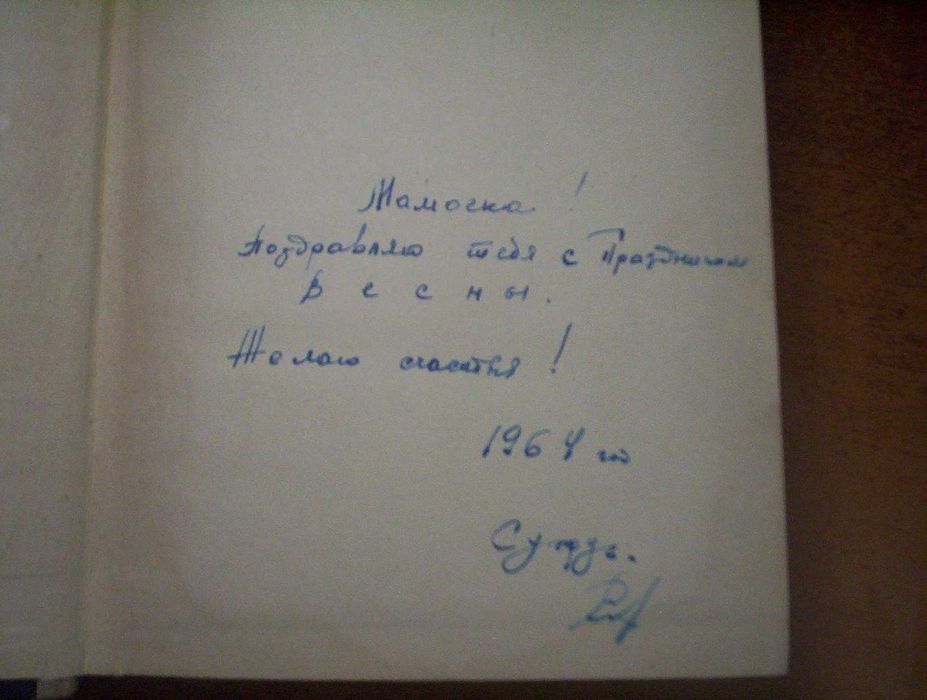 Мамочка!
Поздравляю тебя с Праздником
Весны.
Желаю счастья!
1964 год